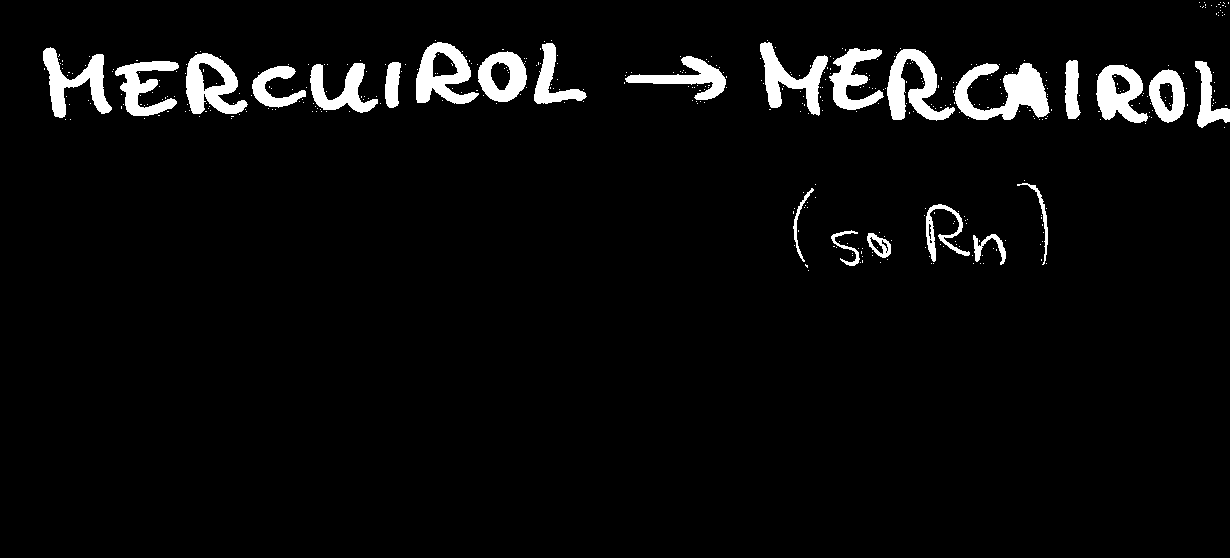 MERCUIROL → MERCAIROL
(so Rn)